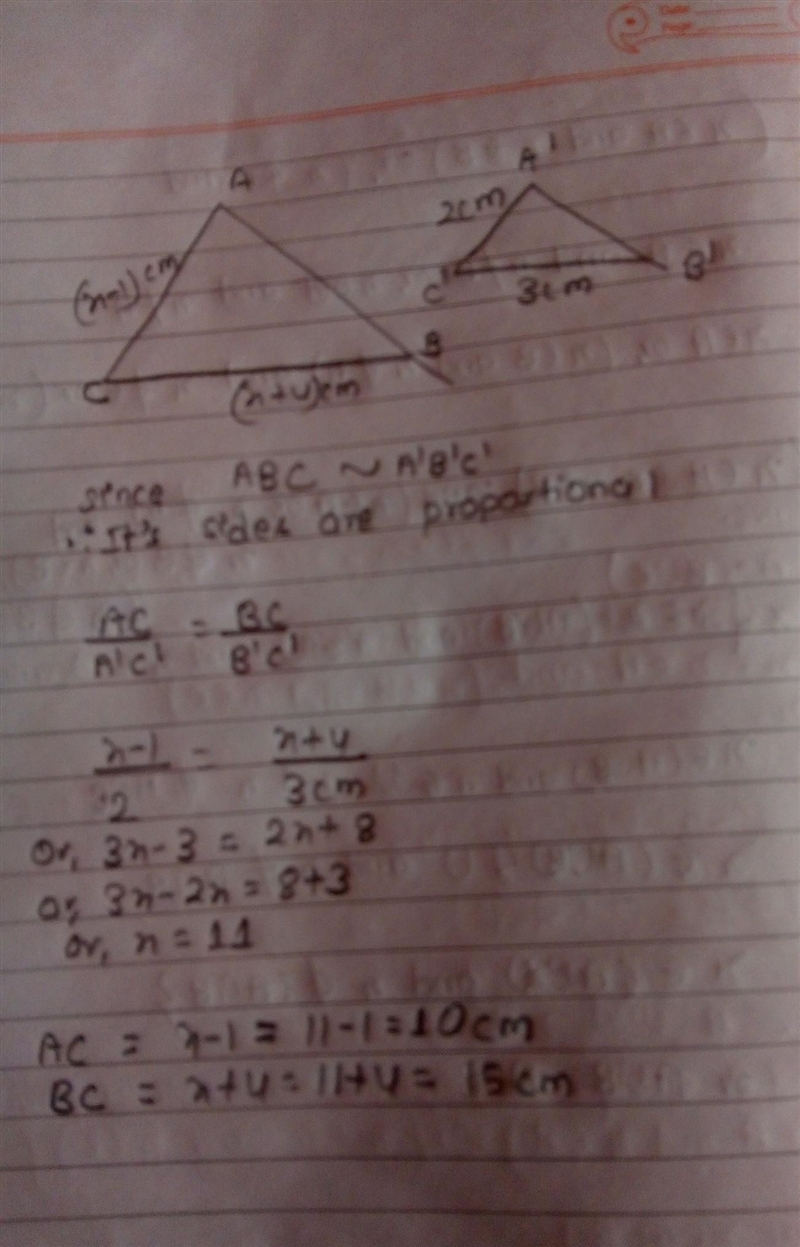 Date
Page
A
A'
2cm
(x-1) cm
C'
3cm
B'
B
C
(x+4)cm
since ABC ~ A'B'C'
∴ It's sides are proportional
AC/A'C' = BC/B'C'
x-1/2 = x+4/3cm
or, 3x-3 = 2x+8
or, 3x-2x = 8+3
or, x = 11
AC = x-1 = 11-1 = 10cm
BC = x+4 = 11+4 = 15cm